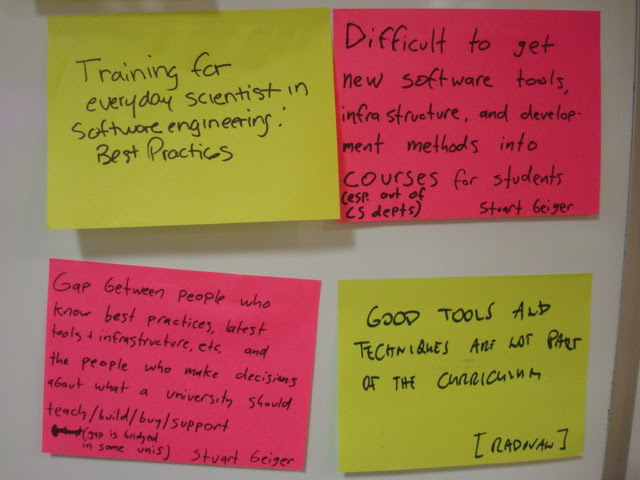 Training for
everyday scientist in
software engineering:
Best Practices
Difficult to get
new software tools,
infrastructure, and develop-
ment methods into
courses for students
(esp. out of
CS depts)
Stuart Geiger
Gap between people who
know best practices, latest
tools + infrastructure, etc. and
the people who make decisions
about what a university should
teach/build/buy/support
(gap is bridged
in some unis)
Stuart Geiger
GOOD TOOLS AND
TECHNIQUES ARE NOT PART
OF THE CURRICULUM
[RADOVAN]